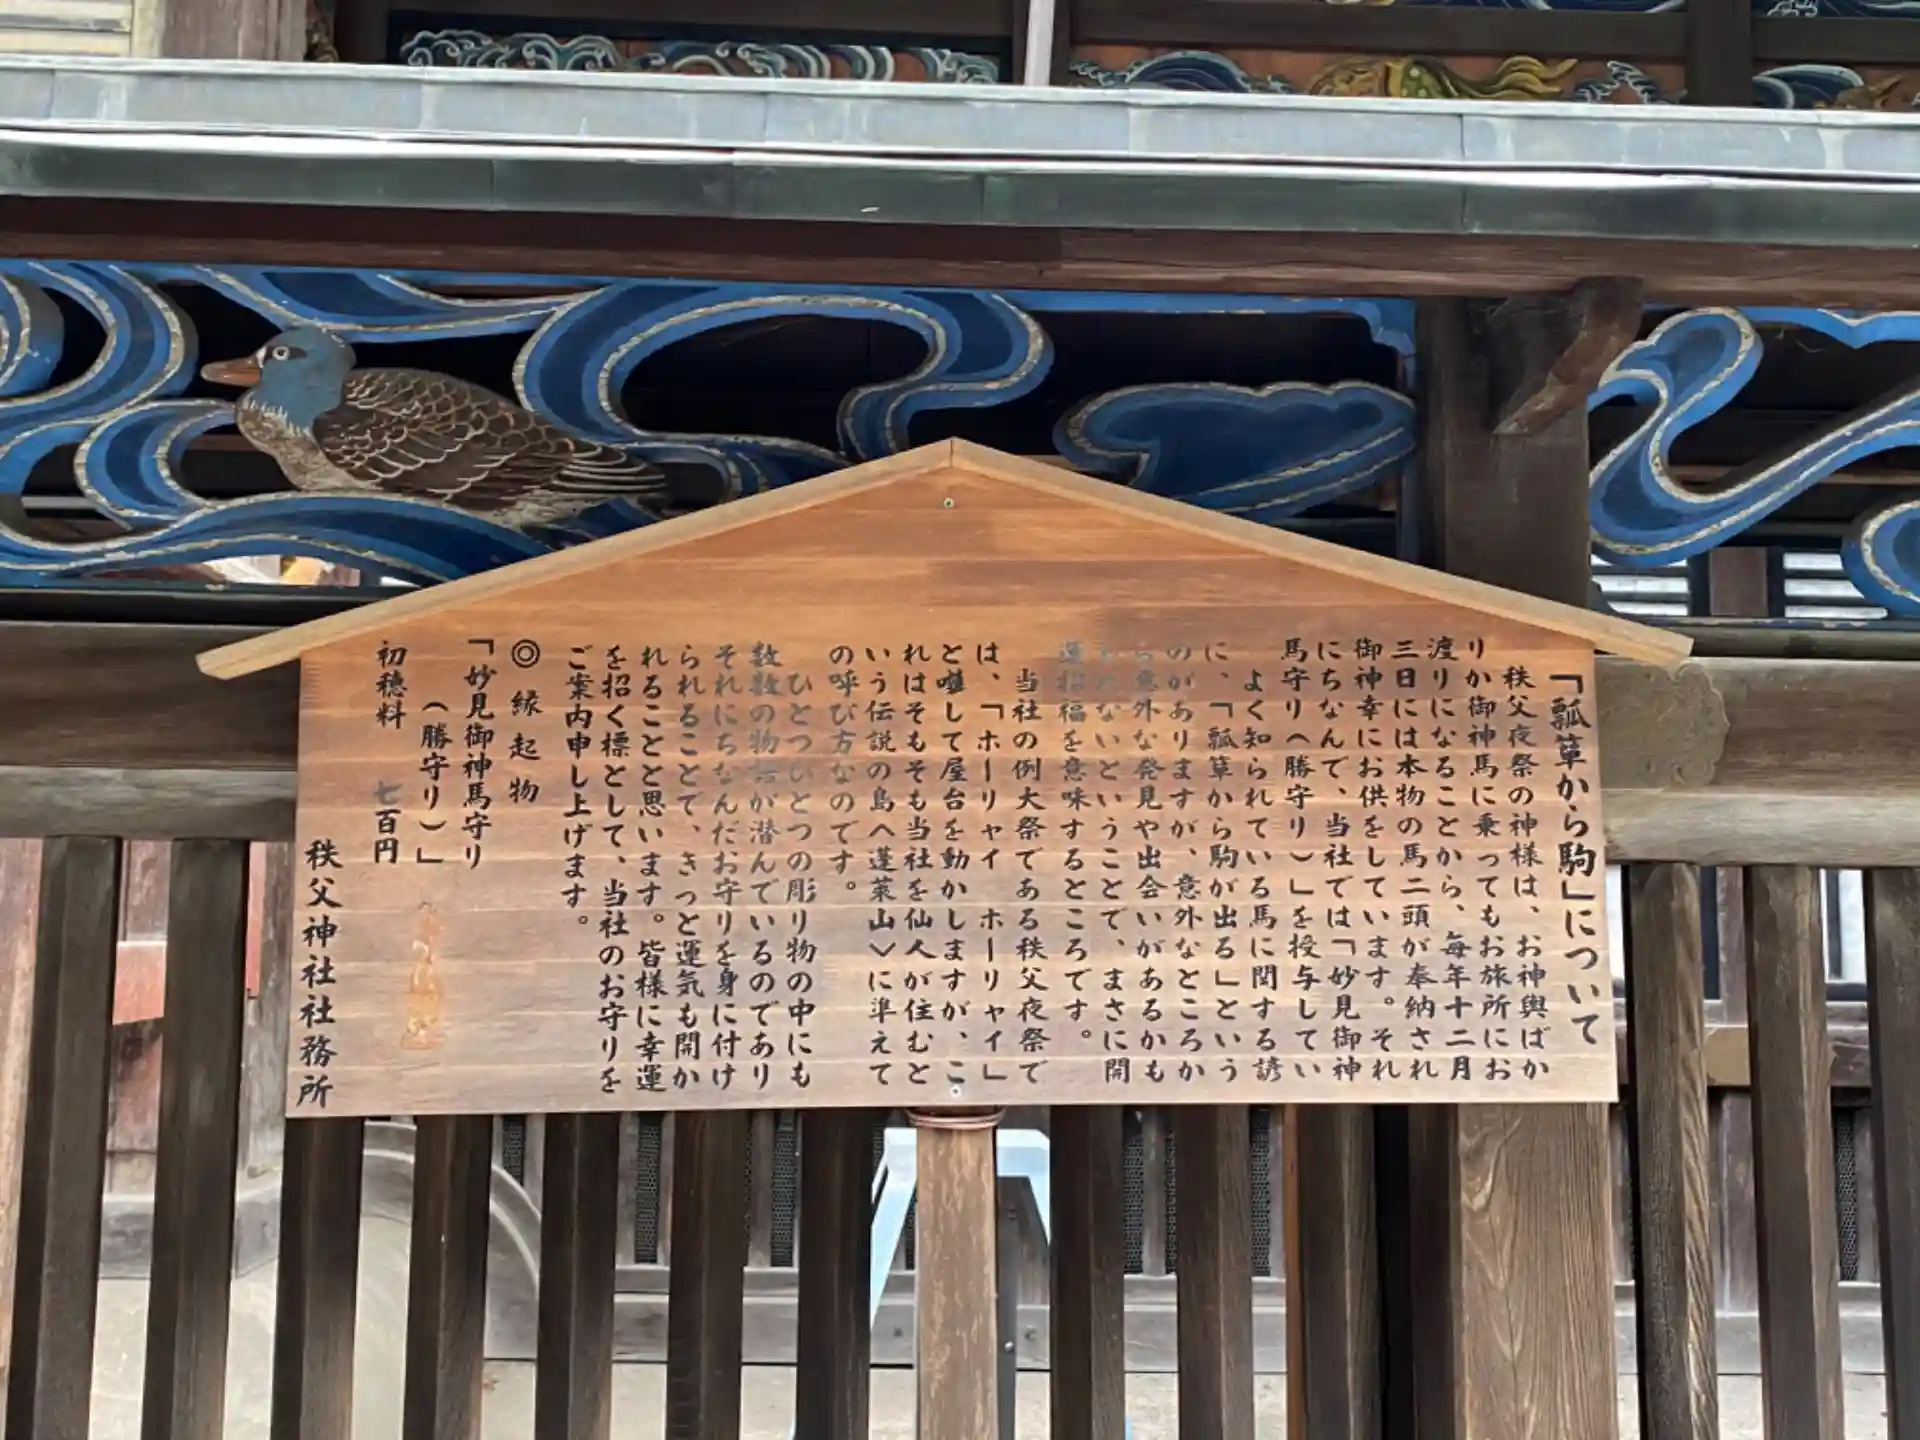 「瓢草から駒」について
秩父夜祭の神様は、お神輿ばか
りか御神馬に乗ってもお旅所にお
渡りになることから、毎年十二月
三日には本物の馬二頭が奉納され
御神幸にお供をしています。それ
にちなんで、当社では「妙見御神
馬守り（勝守り）」を授与してい
よく知られている馬に関する諺
に、「瓢草から駒が出る」という
のがありますが、意外なところか
ら意外な発見や出会いがあるかも
れないということで、まさに開
運招福を意味するところです。
当社の例大祭である秩父夜祭で
は、「ホーリャイ ホーリャイ」
と囃して屋台を動かしますが、こ
れはそもそも当社を仙人が住むと
いう伝説の島〈蓬莱山〉に準えて
の呼び方なのです。
ひとつひとつの彫り物の中にも
数数の物語が潜んでいるのであり
それにちなんだお守りを身に付け
られることで、きっと運気も開か
れることと思います。皆様に幸運
を招く標として、当社のお守りを
ご案内申し上げます。
◎ 縁起物
「妙見御神馬守り
（勝守り）」
初穂料 七百円
秩父神社社務所